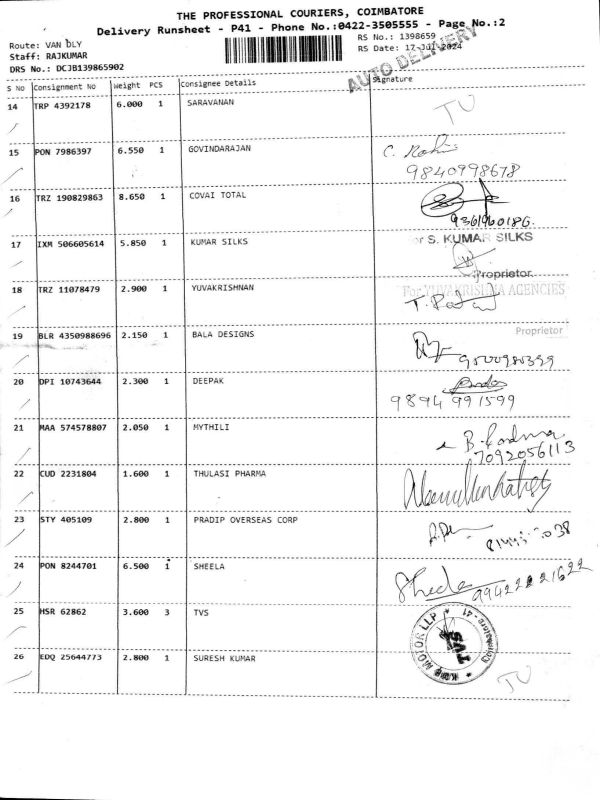 THE PROFESSIONAL COURIERS, COIMBATORE
Delivery Runsheet - P41 - Phone No.:0422-3505555 - Page No.:2
Route: VAN DLY
RS No.: 1398659
Staff: RAJKUMAR
RS Date: 17-Jul-2024
DRS No.: DCJB139865902
AUTO DELIVERY
S No Consignment No Weight PCS Consignee Details Signature
14 TRP 4392178 6.000 1 SARAVANAN
15 PON 7986397 6.550 1 GOVINDARAJAN
9840998678
16 TRZ 190829863 8.650 1 COVAI TOTAL
9361960186.
17 IXM 506605614 5.850 1 KUMAR SILKS
S. KUMAR SILKS
Proprietor
18 TRZ 11078479 2.900 1 YUVAKRISHNAN
For YUVAKRISHNA AGENCIES
Proprietor
19 BLR 4350988696 2.150 1 BALA DESIGNS
20 DPI 10743644 2.300 1 DEEPAK
9894 991599
21 MAA 574578807 2.050 1 MYTHILI
7092056113
22 CUD 2231804 1.600 1 THULASI PHARMA
23 STY 405109 2.800 1 PRADIP OVERSEAS CORP
24 PON 8244701 6.500 1 SHEELA
Sheela
25 HSR 62862 3.600 3 TVS
MOTOR LLP
TVS
26 EDQ 25644773 2.800 1 SURESH KUMAR